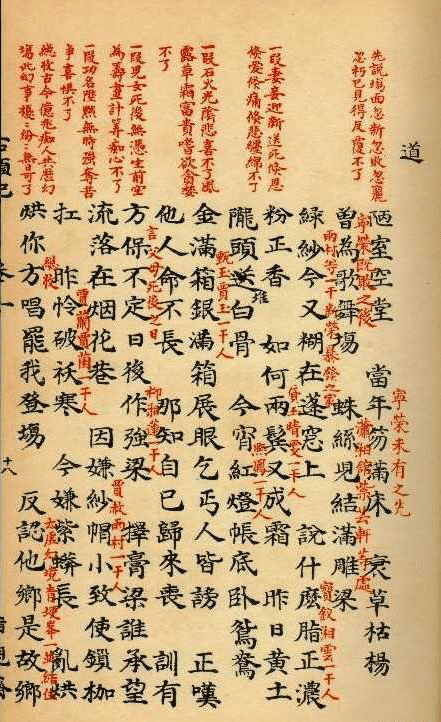 道
陋室空堂　當年笏滿床　衰草枯楊
曾為歌舞場　蛛絲兒結滿雕梁
綠紗今又糊在蓬窓上　說什麽脂正濃
粉正香　如何兩鬢又成霜　昨日黄土
隴頭送白骨　今宵紅燈帳底卧鴛鴦
金滿箱銀滿箱展眼乞丐人皆謗　正嘆
他人命不長　那知自已歸來喪　訓有
方保不定日後作強梁　擇膏梁誰承望
流落在烟花巷　因嫌紗帽小致使鎖枷
扛　昨怜破袄寒　今嫌紫蟒長　亂烘
烘你方唱罷我登場　反認他鄉是故鄉
先說塲面忽新忽敗忽麗
忽朽已見得反覆不了
一段妻妾迎新送死倐恩
倐愛倐痛倐悲纏綿不了
一段石火光陰悲喜不了風
露草霜富貴嗜欲貪婪
不了
一段兒女死後無憑生前空
為籌畫計算痴心不了
一段功名陞黜無時強奪苦
争喜惧不了
總收古今億兆痴人共歷幻
塲此幻事擾擾紛紛無日可了
寧榮未有之先
寧榮既敗之後
瀟湘舘紫芸軒等處
雨村等一干新榮暴發之家
寳釵湘雲一干人
黛玉晴雯一干人
堆
熙鳳一干人
甄玉賈玉一干人
言父母死後之日
柳湘蓮一干人
賈赦雨村一干人
賈蘭賈菌一干人
總收
太虛幻境青埂峯一並結住
十八